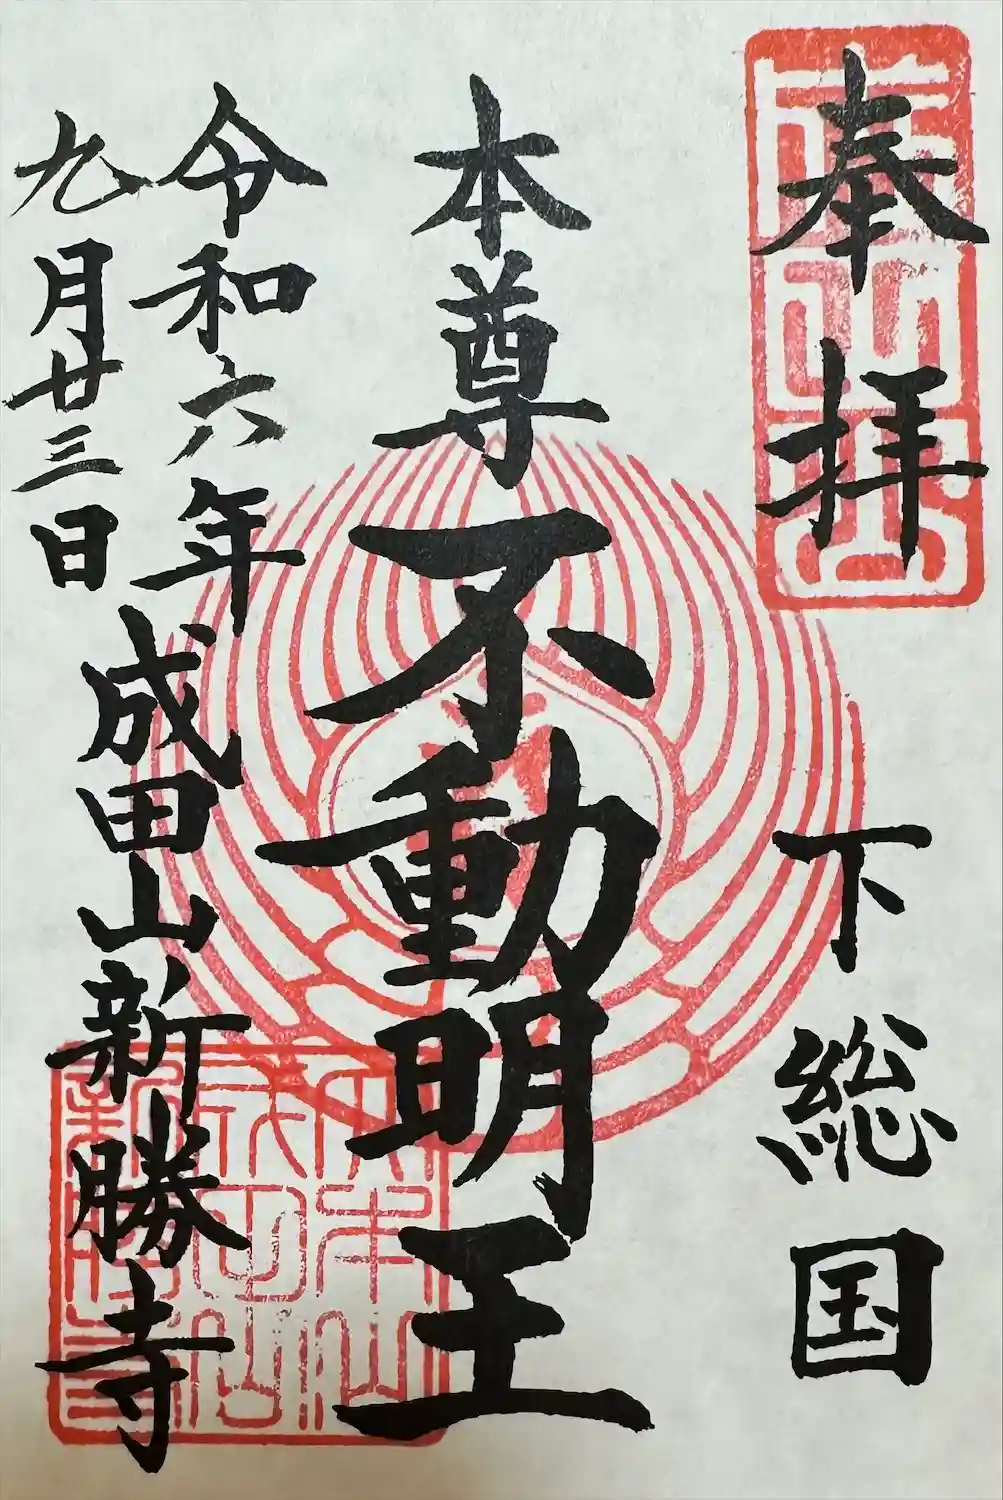 奉拝
下総国
本尊不動明王
令和六年
九月廿三日
成田山新勝寺